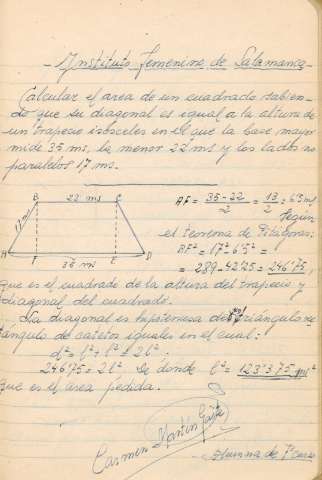 - Instituto femenino de Salamanca -
Calcular el area de un cuadrado sabien-
do que su diagonal es igual a la altura de
un trapecio isósceles en el que la base mayor
mide 35 ms, la menor 22 ms y los lados no
paralelos 17 ms.
B 22 ms C
17 ms
A F E D
35 ms
AF = 35-22/2 = 13/2 = 6'5 ms
Según
el teorema de Pitágoras:
BF² = 17² - 6'5² =
= 289 - 42'25 = 246'75,
que es el cuadrado de la altura del trapecio y
diagonal del cuadrado.
La diagonal es hipotenusa del triángulo rec-
tángulo de catetos iguales en el cual:
d² = l² + l² = 2l²;
246'75 = 2l² de donde l² = 123'375 ms²
que es el área pedida.
Carmen Martín Gaite
- alumna de 7º curso